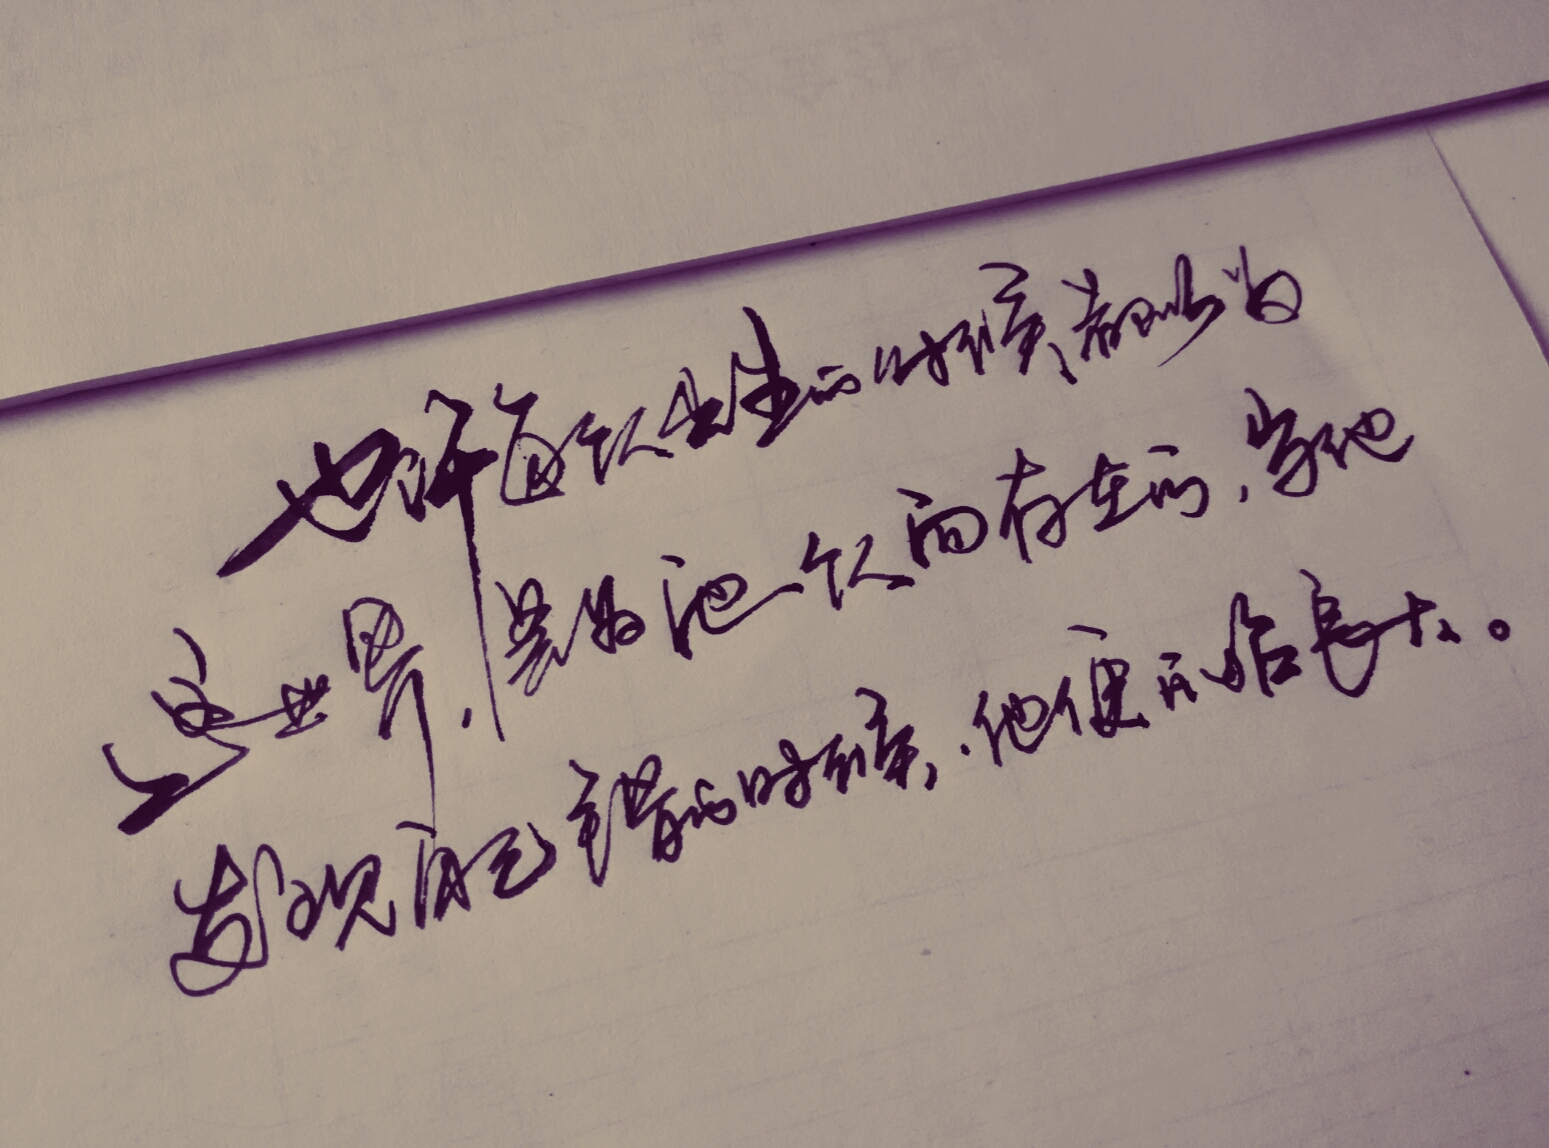 也许每个人出生的时候,都以为
这世界,是为他一个人而存在的,当他
发现自己错的时候,他便开始長大。